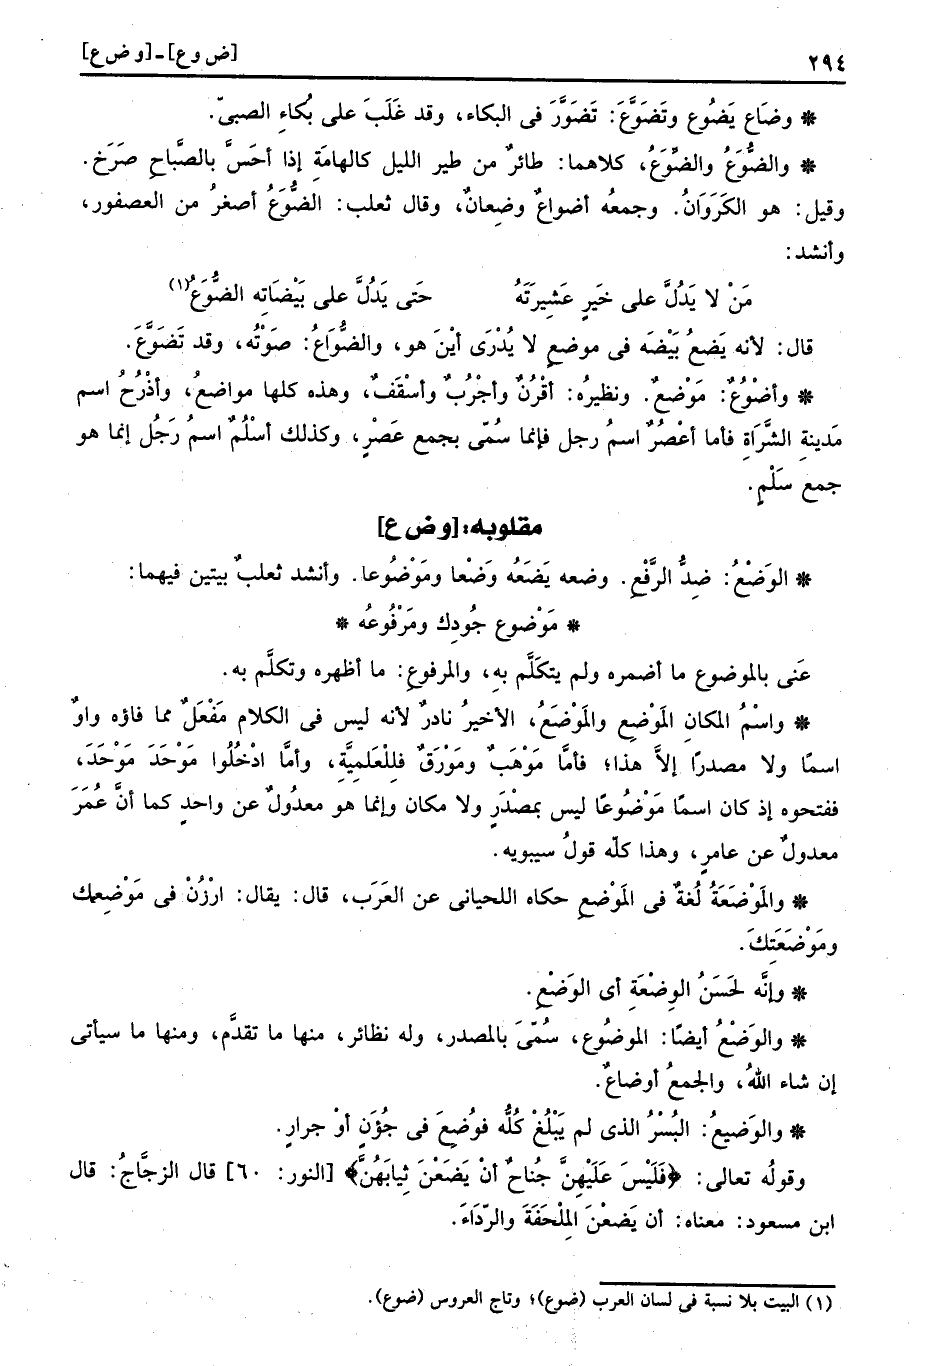 ٢٩٤ [ض و ع] - [و ض ع]
* وضَاع يَضُوع وتَضَوَّعَ: تَضَوَّرَ فى البكاء، وقد غَلَبَ على بُكاءِ الصبىّ.
* والضُّوَعُ والضِّوَعُ، كلاهما: طائرٌ من طير الليل كالهامَةِ إذا أحَسَّ بالصَّباحِ صَرَخَ.
وقيل: هو الكَرَوَانُ. وجمعُه أضواعٌ وضِعانٌ، وقال ثعلب: الضُّوَعُ أصغرُ من العصفور،
وأنشد:
مَنْ لا يَدُلَّ على خَيرٍ عَشيرَتَهُ حَتى يَدُلَّ على بَيْضَاتِه الضُّوَعُ(١)
قال: لأنه يَضعُ بَيْضَه فى موضعٍ لا يُدْرَى أيْنَ هو، والضُّوَاعُ: صَوْتُه، وقد تَضَوَّعَ.
* وأضْوُعٌ: مَوْضعٌ. ونظيرُه: أقْرُنٌ وأجْرُبٌ وأسْقُفٌ، وهذه كلها مواضعُ، وأذْرُحُ اسم
مَدينةِ الشَّرَاةِ فأما أعْصُرٌ اسمُ رجل فإنما سُمّى بجمع عَصْرٍ، وكذلك أسْلُمٌ اسمُ رَجُل إنما هو
جمع سَلْمٍ.
مقلوبه: [و ض ع]
* الوَضْعُ: ضِدُّ الرَّفْعِ. وضعه يَضَعُه وَضْعا ومَوْضُوعا. وأنشد ثعلبٌ بيتين فيهما:
* مَوْضوع جُودِك ومَرْفُوعُه *
عَنى بالموضوع ما أضمره ولم يتكَلَّم به، والمرفوع: ما أظهره وتكلَّم به.
* واسْمُ المكانِ المَوْضِع والمَوْضَعُ، الأخيرُ نادرٌ لأنه ليس فى الكلام مَفْعَلٌ مما فاؤه واوٌ
اسمًا ولا مصدرًا إلاَّ هذا؛ فأمَّا مَوْهَبٌ ومَوْرَقٌ فللْعَلميَّة، وأمَّا ادْخُلُوا مَوْحَدَ مَوْحَدَ،
ففتحوه إذ كان اسمًا مَوْضُوعًا ليس بمصْدَرٍ ولا مكان وإنما هو معدُولٌ عن واحدٍ كما أنَّ عُمَرَ
معدولٌ عن عامرٍ، وهذا كلّه قولُ سيبويه.
* والمَوْضَعَةُ لُغةٌ فى المَوْضعِ حكاه اللحيانى عن العَرَب، قال: يقال: ارْزُنْ فى مَوْضعك
ومَوْضَعَتِكَ.
* وإنَّه لحَسَنُ الوِضْعَةِ أى الوَضْعِ.
* والوَضْعُ أيضًا: الموضُوع، سُمّىَ بالمصدر، وله نظائر، منها ما تقدَّم، ومنها ما سيأتى
إن شاء اللهُ، والجمعُ أوضاعٌ.
* والوَضيعُ: البُسْرُ الذى لم يَبْلُغْ كُلُّه فوُضِعَ فى جُؤَنٍ أوْ جرارٍ.
وقولُه تعالى: ﴿فَلَيْسَ عَلَيْهِنَّ جُناحٌ أنْ يَضَعْنَ ثِيابَهُنَّ﴾ [النور: ٦٠] قال الزجَّاجُ: قال
ابن مسعود: معناه: أن يَضعْنَ المِلْحَفَةَ والرّدَاءَ.
(١) البيت بلا نسبة فى لسان العرب (ضوع)؛ وتاج العروس (ضوع).